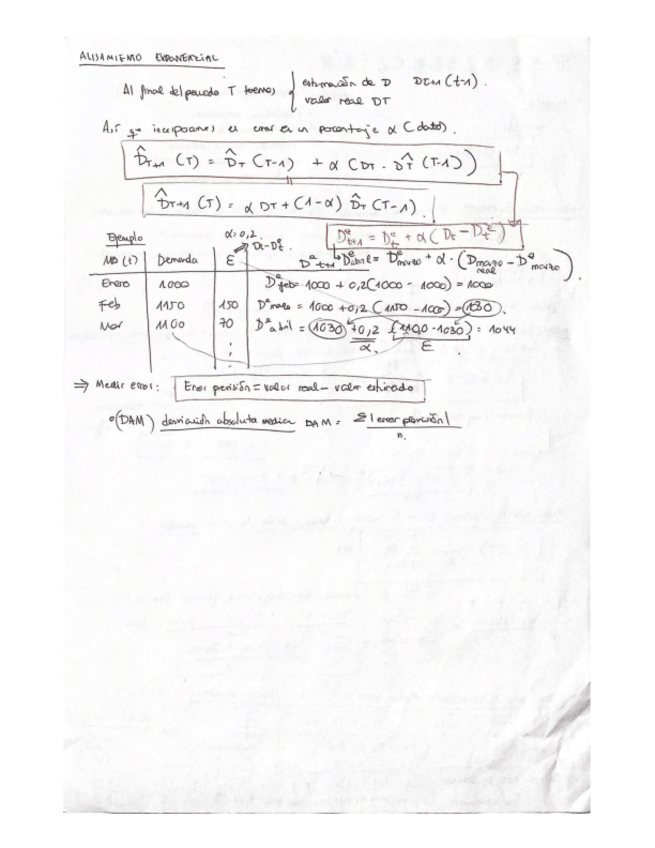 ALISAMIENTO EXPONENCIAL
Al final del periodo T tenemos { estimación de D  DT+1 (t-1).
valor real DT
Así que incorporamos el error en un porcentaje α (dato).
D̂T+1 (T) = D̂T (T-1) + α (DT - D̂T (T-1))
D̂T+1 (T) = α DT + (1-α) D̂T (T-1).
Dᵉt+1 = Dᵉt + α (Dt - Dᵉt)
Ejemplo α=0,2
Dt-Dᵉt.
Mes (t) Demanda ε Dᵉt+1 Dᵉabril = Dᵉmarzo + α · (Dmarzo real - Dᵉmarzo).
Enero 1000 Dᵉfeb = 1000 + 0,2(1000 - 1000) = 1000
Feb 1150 150 Dᵉmarzo = 1000 + 0,2 (1150 - 1000) = 1030.
Mar 1100 70 Dᵉabril = 1030 + 0,2 (1100 - 1030) = 1044
α. ε.
⇒ Medir error: Error previsión = valor real - valor estimado
º(DAM) desviación absoluta media DAM = Σ|error previsión|
n.